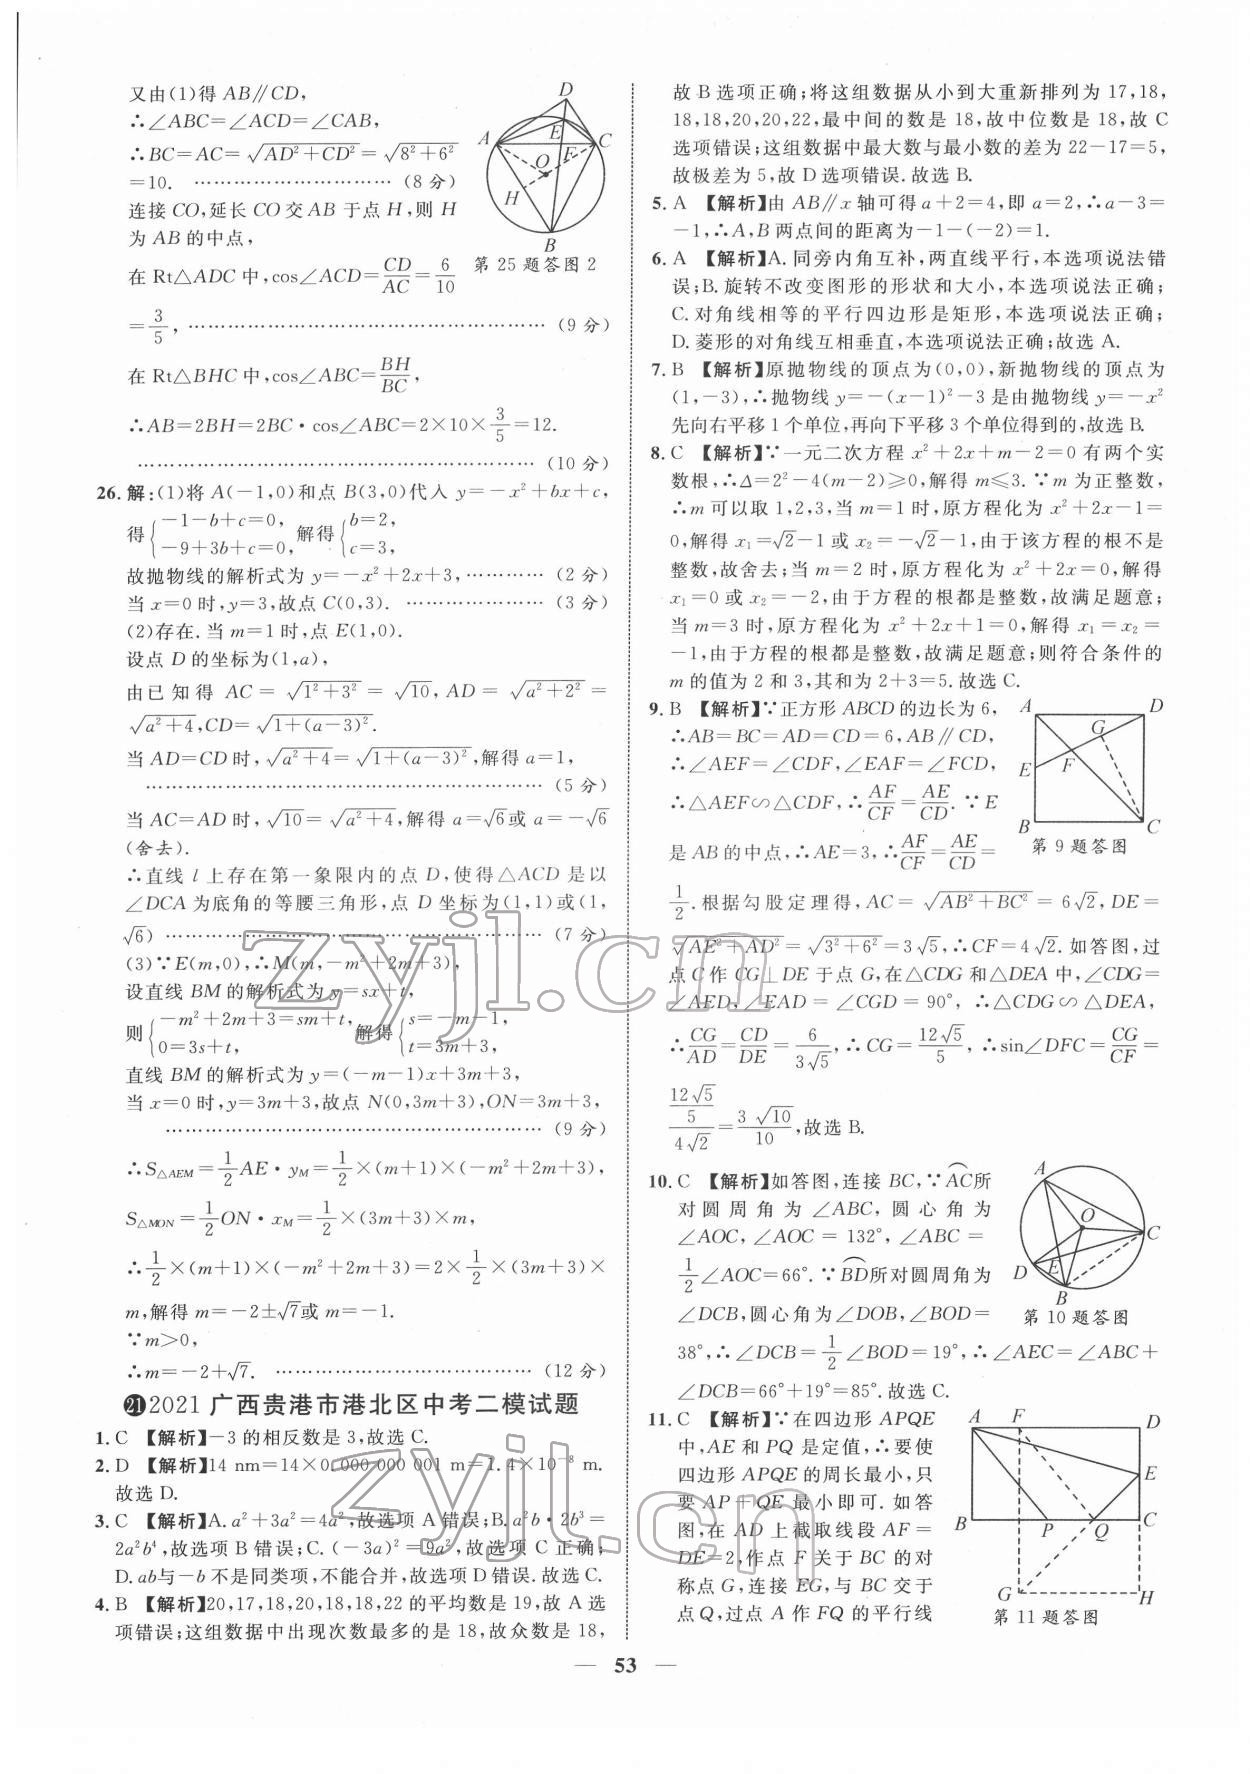 又由(1)得 AB∥CD,
∴∠ABC=∠ACD=∠CAB,
∴BC=AC=√(AD²+CD²)=√(8²+6²)
=10. …………………………(8 分)
连接 CO,延长 CO 交 AB 于点 H,则 H
为 AB 的中点,
在 Rt△ADC 中,cos∠ACD=CD/AC=6/10
=3/5, ………………………………………………(9 分)
在 Rt△BHC 中,cos∠ABC=BH/BC,
∴AB=2BH=2BC·cos∠ABC=2×10×3/5=12.
……………………………………………………(10 分)
D
A
E
C
O
F
H
B
第 25 题答图 2
26. 解:(1)将 A(-1,0)和点 B(3,0)代入 y=-x²+bx+c,
得{-1-b+c=0, -9+3b+c=0, 解得{b=2, c=3,
故抛物线的解析式为 y=-x²+2x+3,…………(2 分)
当 x=0 时,y=3,故点 C(0,3). …………………(3 分)
(2)存在. 当 m=1 时,点 E(1,0).
设点 D 的坐标为(1,a),
由已知得 AC=√(1²+3²)=√10, AD=√(a²+2²)=
√(a²+4),CD=√(1+(a-3)²).
当 AD=CD 时,√(a²+4)=√(1+(a-3)²),解得 a=1,
……………………………………………………(5 分)
当 AC=AD 时,√10=√(a²+4),解得 a=√6或 a=-√6
(舍去).
∴直线 l 上存在第一象限内的点 D,使得△ACD 是以
∠DCA 为底角的等腰三角形,点 D 坐标为(1,1)或(1,
√6) …………………………………………………(7 分)
(3)∵E(m,0),∴M(m,-m²+2m+3),
设直线 BM 的解析式为 y=sx+t,
则{-m²+2m+3=sm+t, 0=3s+t, 解得{s=-m-1, t=3m+3,
直线 BM 的解析式为 y=(-m-1)x+3m+3,
当 x=0 时,y=3m+3,故点 N(0,3m+3),ON=3m+3,
…………………………………………………(9 分)
∴S△AEM=1/2AE·yM=1/2×(m+1)×(-m²+2m+3),
S△MON=1/2ON·xM=1/2×(3m+3)×m,
∴1/2×(m+1)×(-m²+2m+3)=2×1/2×(3m+3)×
m,解得 m=-2±√7或 m=-1.
∵m>0,
∴m=-2+√7. …………………………………(12 分)
㉑2021 广西贵港市港北区中考二模试题
1. C 【解析】-3 的相反数是 3,故选 C.
2. D 【解析】14 nm=14×0.000 000 001 m=1.4×10⁻⁸ m.
故选 D.
3. C 【解析】A. a²+3a²=4a²,故选项 A 错误;B. a²b·2b³=
2a²b⁴,故选项 B 错误;C. (-3a)²=9a²,故选项 C 正确;
D. ab与-b 不是同类项,不能合并,故选项 D 错误. 故选 C.
4. B 【解析】20,17,18,20,18,18,22 的平均数是 19,故 A 选
项错误;这组数据中出现次数最多的是 18,故众数是 18,
故 B 选项正确;将这组数据从小到大重新排列为 17,18,
18,18,20,20,22,最中间的数是 18,故中位数是 18,故 C
选项错误;这组数据中最大数与最小数的差为 22-17=5,
故极差为 5,故 D 选项错误. 故选 B.
5. A 【解析】由 AB∥x 轴可得 a+2=4,即 a=2,∴a-3=
-1,∴A,B 两点间的距离为-1-(-2)=1.
6. A 【解析】A. 同旁内角互补,两直线平行,本选项说法错
误;B. 旋转不改变图形的形状和大小,本选项说法正确;
C. 对角线相等的平行四边形是矩形,本选项说法正确;
D. 菱形的对角线互相垂直,本选项说法正确;故选 A.
7. B 【解析】原抛物线的顶点为(0,0),新抛物线的顶点为
(1,-3),∴抛物线 y=-(x-1)²-3 是由抛物线 y=-x²
先向右平移 1 个单位,再向下平移 3 个单位得到的,故选 B.
8. C 【解析】∵一元二次方程 x²+2x+m-2=0 有两个实
数根,∴Δ=2²-4(m-2)≥0,解得 m≤3. ∵m 为正整数,
∴m 可以取 1,2,3,当 m=1 时,原方程化为 x²+2x-1=
0,解得 x₁=√2-1 或 x₂=-√2-1,由于该方程的根不是
整数,故舍去;当 m=2 时,原方程化为 x²+2x=0,解得
x₁=0 或 x₂=-2,由于方程的根都是整数,故满足题意;
当 m=3 时,原方程化为 x²+2x+1=0,解得 x₁=x₂=
-1,由于方程的根都是整数,故满足题意;则符合条件的
m 的值为 2 和 3,其和为 2+3=5. 故选 C.
9. B 【解析】∵正方形 ABCD 的边长为 6,
∴AB=BC=AD=CD=6,AB∥CD,
∴∠AEF=∠CDF,∠EAF=∠FCD,
∴△AEF∽△CDF,∴AF/CF=AE/CD. ∵E
是 AB 的中点,∴AE=3,∴AF/CF=AE/CD=
1/2. 根据勾股定理得,AC=√(AB²+BC²)=6√2,DE=
√(AE²+AD²)=√(3²+6²)=3√5,∴CF=4√2. 如答图,过
点 C 作 CG⊥DE 于点 G,在△CDG 和△DEA 中,∠CDG=
∠AED,∠EAD=∠CGD=90°, ∴△CDG∽△DEA,
∴CG/AD=CD/DE=6/3√5,∴CG=12√5/5, ∴sin∠DFC=CG/CF=
(12√5/5)/4√2=3√10/10,故选 B.
A
D
G
E
F
B
C
第 9 题答图
10. C 【解析】如答图,连接 BC,∵A͡C所
对圆周角为∠ABC,圆心角为
∠AOC,∠AOC=132°,∠ABC=
1/2∠AOC=66°. ∵B͡D所对圆周角为
∠DCB,圆心角为∠DOB,∠BOD=
38°,∴∠DCB=1/2∠BOD=19°,∴∠AEC=∠ABC+
∠DCB=66°+19°=85°. 故选 C.
A
O
C
D
E
B
第 10 题答图
11. C 【解析】∵在四边形 APQE
中,AE 和 PQ 是定值,∴要使
四边形 APQE 的周长最小,只
要 AP+QE 最小即可. 如答
图,在 AD 上截取线段 AF=
DE=2,作点 F 关于 BC 的对
称点 G,连接 EG,与 BC 交于
点 Q,过点 A 作 FQ 的平行线
A
F
D
E
B
P
Q
C
G
H
第 11 题答图
— 53 —
zyjl.cn
zyjl.cn